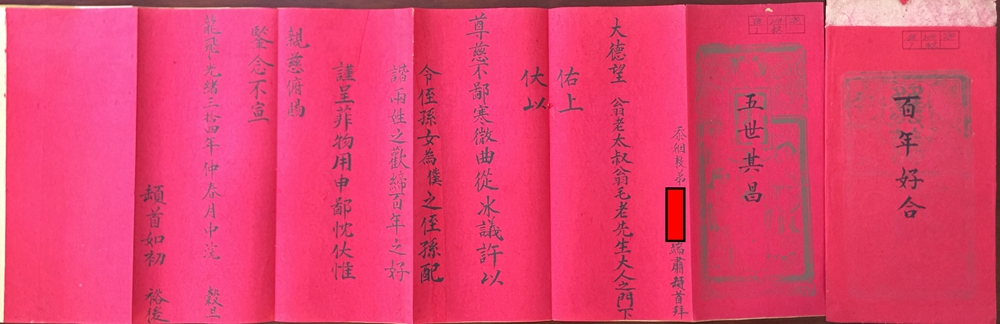 百年好合
五世其昌
忝姻晚弟 端肅頓首拜
大德望 翁老太叔翁毛老先生大人之門下
佑上
伏以
尊慈不鄙寒微曲從冰議許以
令侄孫女為僕之侄孫配
諧兩姓之歡締百年之好
謹呈菲物用申鄙忱伏惟
親慈俯賜
鑒念不宣
龍飛光緒三拾四年仲春月中浣 穀旦
頓首如初 裕後